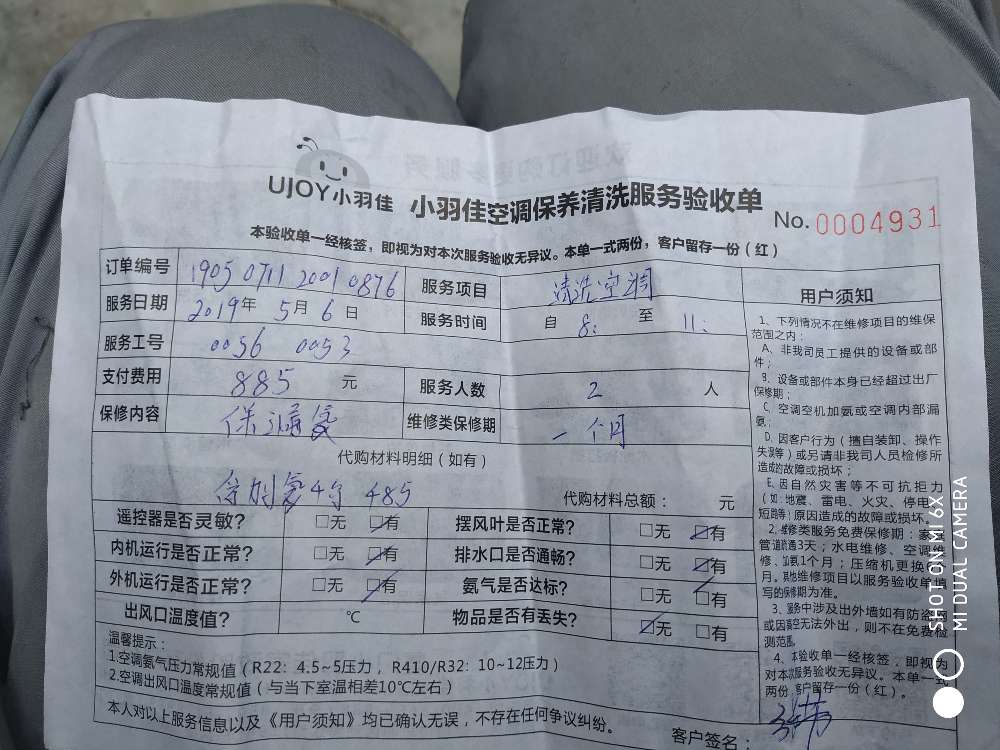 UJOY小羽佳 小羽佳空调保养清洗服务验收单 No. 0004931
本验收单一经核签，即视为对本次服务验收无异议。本单一式两份，客户留存一份（红）
订单编号 1905 0711 2001 0876 服务项目 清洗空调
服务日期 2019年 5月 6日 服务时间 自 8: 至 11:
服务工号 0056 0053
支付费用 885 元 服务人数 2 人
保修内容 维修类保修期 一个月
代购材料明细（如有）
485 代购材料总额： 元
遥控器是否灵敏? □无 ☑有 摆风叶是否正常? □无 ☑有
内机运行是否正常? □无 ☑有 排水口是否通畅? □无 ☑有
外机运行是否正常? □无 ☑有 氨气是否达标? □无 □有
出风口温度值? ℃ 物品是否有丢失? ☑无 □有
温馨提示：
1.空调氨气压力常规值（R22: 4.5~5压力，R410/R32: 10~12压力）
2.空调出风口温度常规值（与当下室温相差10℃左右）
本人对以上服务信息以及《用户须知》均已确认无误，不存在任何争议纠纷。
客户签名：
用户须知
1、下列情况不在维修项目的维保
范围之内：
A、非我司员工提供的设备或部
件；
B、设备或部件本身已经超过出厂
保修期；
C、空调空机加氨或空调内部漏
氨；
D、因客户行为（擅自装卸、操作
失误等）或另请非我司人员检修所
造成的故障或损坏；
E、因自然灾害等不可抗拒力
（如:地震、雷电、火灾、停电、
短路等）原因造成的故障或损坏。
2、维修类服务免费保修期：家
管道疏通3天；水电维修、空调维
修、加氨1个月；压缩机更换6
月。其他维修项目以服务验收单填
写的保修期为准。
3、服务中涉及出外墙如有防盗网
或因高空无法外出，则不在免费检
测范围。
4、本验收单一经核签，即视为
对本次服务验收无异议。本单一式
两份，客户留存一份（红）。
SHOT ON MI 6X
MI DUAL CAMERA